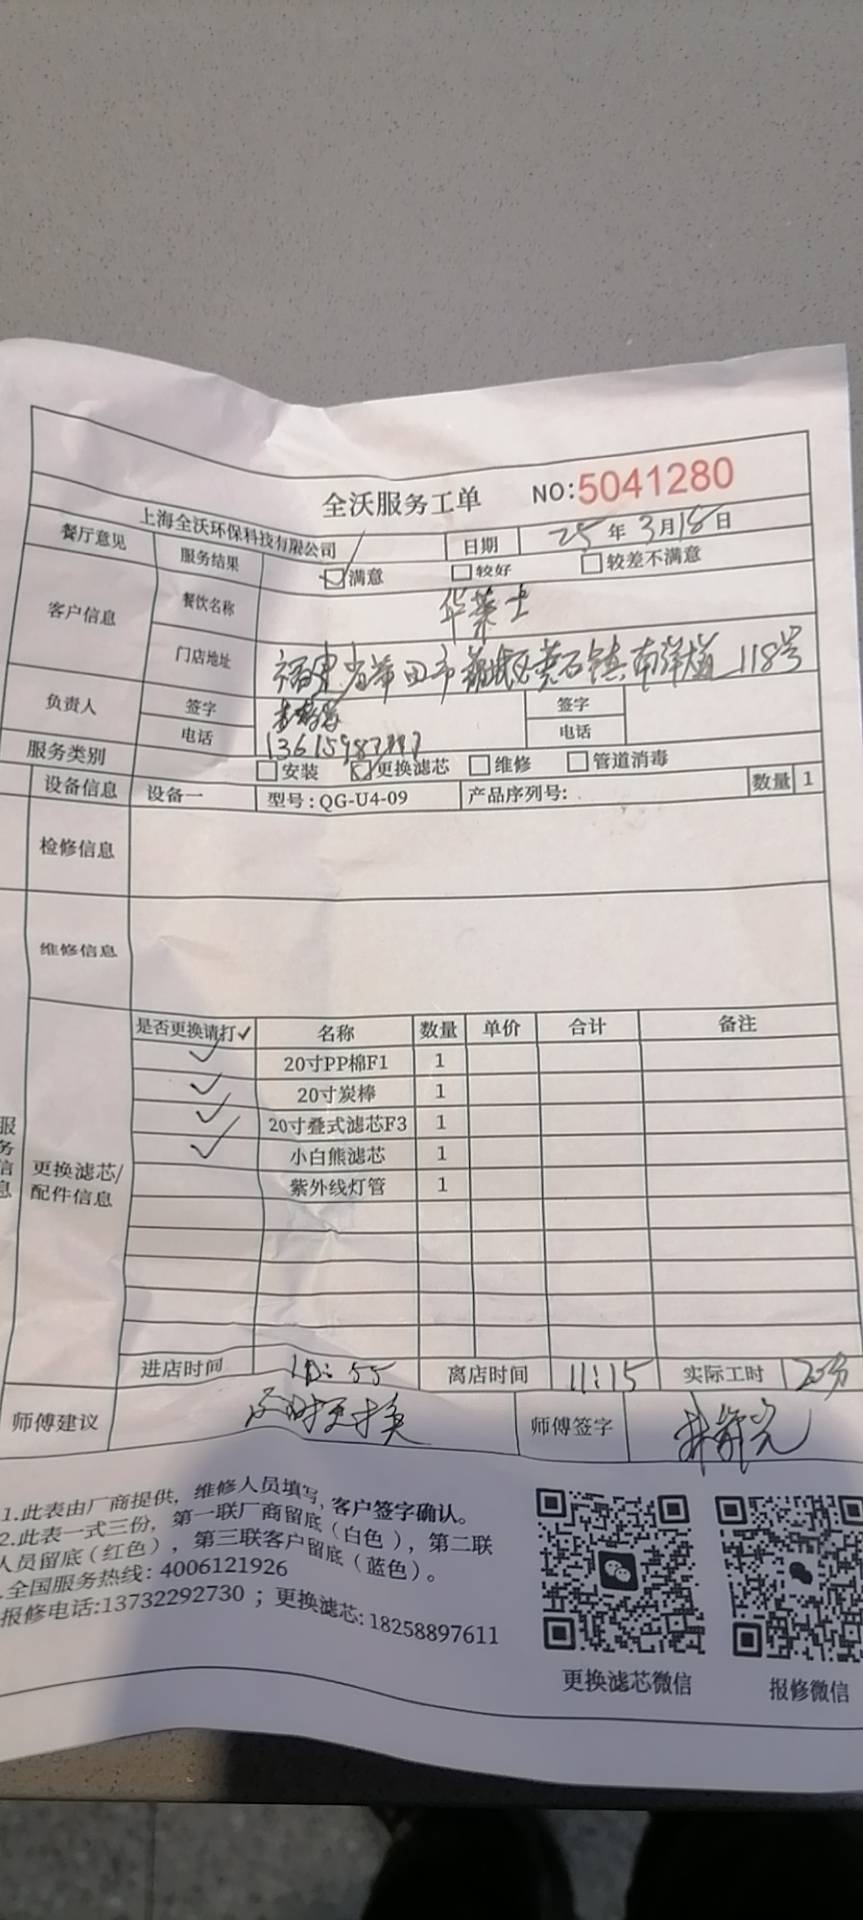 全沃服务工单 NO:5041280
上海全沃环保科技有限公司 日期 25年3月18日
餐厅意见 服务结果 满意 较好 较差不满意
客户信息 餐饮名称 华莱士
门店地址 福建省莆田市荔城区黄石镇南洋 118号
负责人 签字 签字
电话 电话
服务类别 安装 更换滤芯 维修 管道消毒
设备信息 设备一 型号:QG-U4-09 产品序列号: 数量 1
检修信息
维修信息
服务信息
更换滤芯/
配件信息
是否更换请打✓ 名称 数量 单价 合计 备注
✓ 20寸PP棉F1 1
✓ 20寸炭棒 1
✓ 20寸叠式滤芯F3 1
✓ 小白熊滤芯 1
紫外线灯管 1
进店时间 10:55 离店时间 11:15 实际工时 20分
师傅建议 及时更换 师傅签字
1.此表由厂商提供，维修人员填写，客户签字确认。
2.此表一式三份，第一联厂商留底（白色），第二联
人员留底（红色），第三联客户留底（蓝色）。
.全国服务热线：4006121926
报修电话:13732292730 ；更换滤芯: 18258897611
更换滤芯微信 报修微信